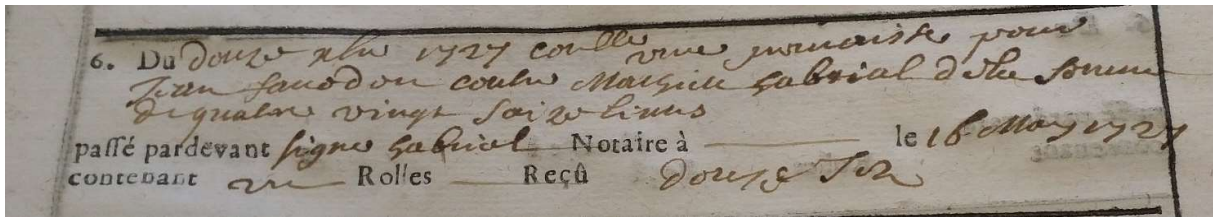 6. Du douze xbre 1727 conlle une promaisse pour
Jean faucodon contre Mathieu Gabriel dela somme
de quatre vingt saize livres
passé pardevant signe Gabriel Notaire à le 16 May 1727
contenant un Rolles Reçû douze sols